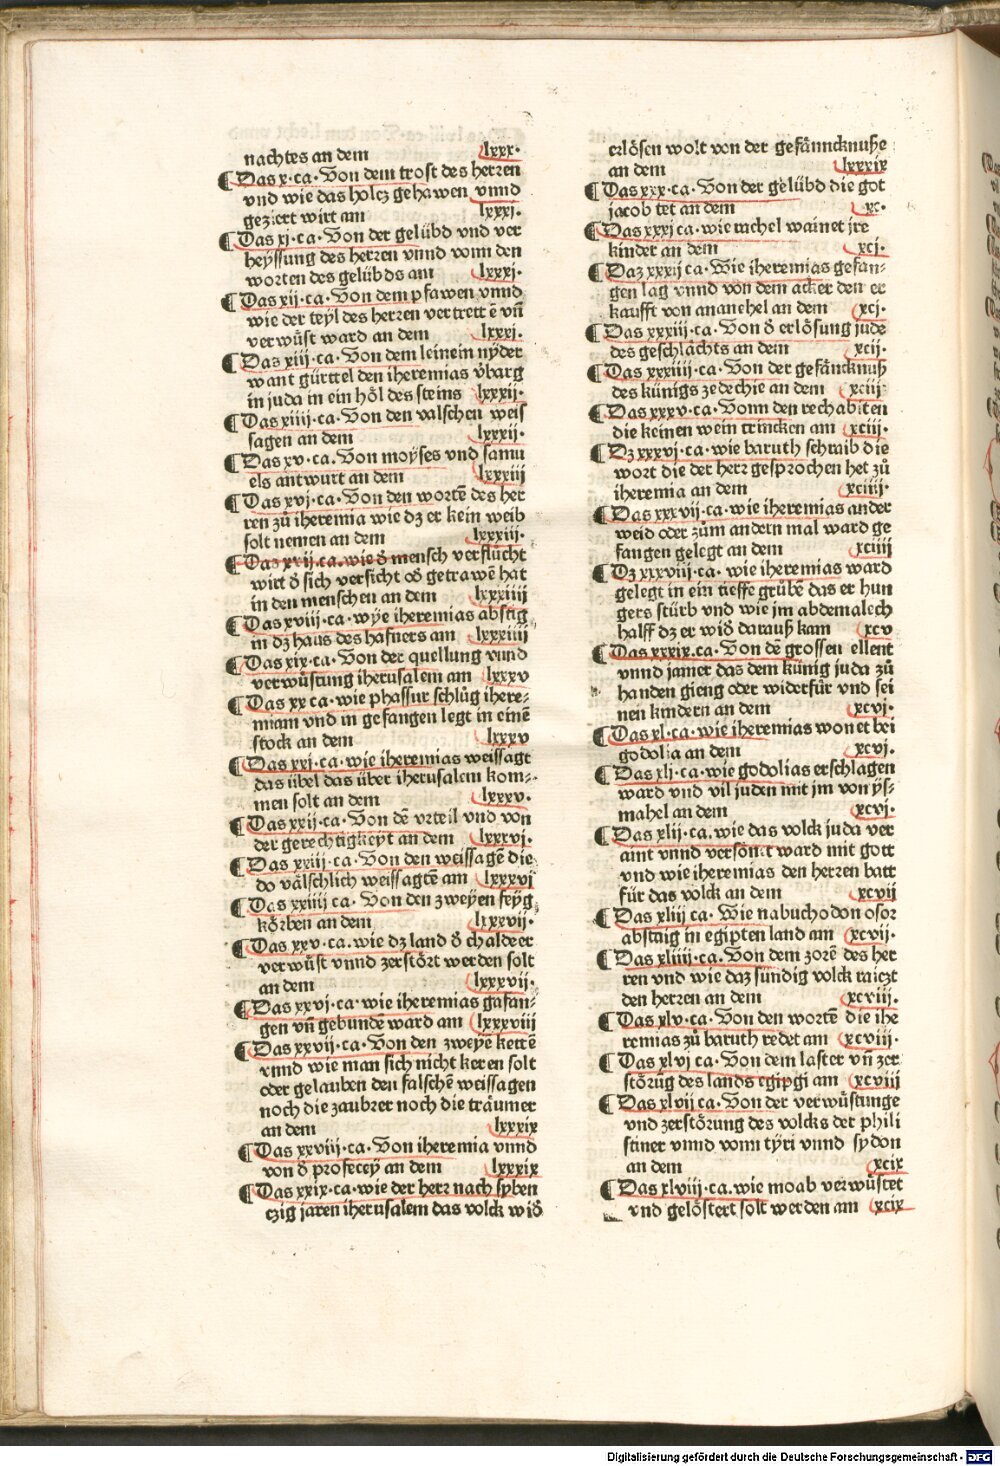 nachtes an dem lxxx.
¶ Das x. ca. Von dem trost des herren
vnd wie das holcz gehawen vnnd
geziert wirt am lxxxj.
¶ Das xj. ca. Von der gelübd vnd ver
heyssung des herren vnnd vonn den
worten des gelübds am lxxxj.
¶ Das xij. ca. Von dem pfawen vnnd
wie der teyl des herren vertrett ē vn̄
verwůst ward an dem lxxxj.
¶ Das xiij. ca. Von dem leinein nyder
want gürttel den iheremias v̈barg
in juda in ein höl des steins lxxxij.
¶ Das xiiij. ca. Von den valschen weis
sagen an dem lxxxij.
¶ Das xv. ca. Von moyses vnd samu
els antwurt an dem lxxxiij
¶ Das xvj. ca. Von den wortē des her
ren zů iheremia wie dz er kein weib
solt nemen an dem lxxxiij.
¶ Das xvij. ca. wie d̄ mensch verflůcht
wirt d̄ sich versicht od̄ getrawē hat
in den menschen an dem lxxxiiij
¶ Das xviij. ca. wye iheremias abstig
in dz haus des hafners am lxxxiiij
¶ Das xix. ca. Von der quellung vnnd
verwůstung iherusalem am lxxxv
¶ Das xx ca. wie phassur schlůg ihere-
miam vnd in gefangen legt in einē
stock an dem lxxxv
¶ Das xxj. ca. wie iheremias weissagt
das übel das über iherusalem kom-
men solt an dem lxxxv.
¶ Das xxij. ca. Von dē vrteil vnd von
der gerechtigkeyt an dem lxxxvj.
¶ Das xxiij. ca. Von den weissagē die
do välschlich weissagtē am lxxxvj
¶ Das xxiiij ca. Von den zweyen feyg
körben an dem lxxxvij.
¶ Das xxv. ca. wie dz land d̄ chaldeer
verwůst vnnd zerstört werden solt
an dem lxxxvij.
¶ Das xxvj. ca. wie iheremias gafan-
gen vn̄ gebundē ward am lxxxviij
¶ Das xxvij. ca. Von den zweyē kettē
vnnd wie man sich nicht keren solt
oder gelauben den falschē weissagen
noch die zaubrer noch die träumer
an dem lxxxix
¶ Das xxviij. ca. Von iheremia vnnd
von d̄ profecey an dem lxxxix
¶ Das xxix. ca. wie der herr nach syben
czig jaren iherusalem das volck wid̄
erlösen wolt von der gefänncknuße
an dem lxxxix
¶ Das xxx. ca. Von der gelübd die got
jacob tet an dem xc.
¶ Das xxxj ca. wie rachel wainet jre
kinder an dem xcj.
¶ Daz xxxij ca. Wie iheremias gefan-
gen lag vnnd von dem acker den er
kaufft von ananehel an dem xcj.
¶ Das xxxiij. ca. Von d̄ erlösung jude
des geschlächts an dem xcij.
¶ Das xxxiiij. ca. Von der gefäncknuß
des künigs zedechie an dem xciij
¶ Das xxxv. ca. Vonn den rechabiten
die keinen wein trincken am xciij.
¶ Dz xxxvj. ca. wie baruth schraib die
wort die der herr gesprochen het zů
iheremia an dem xciiij.
¶ Das xxxvij. ca. wie iheremias ander
weid oder zům andern mal ward ge
fangen gelegt an dem xciiij
¶ Dz xxxviij. ca. wie iheremias ward
gelegt in ein tieffe grůbē das er hun
gers stürb vnd wie jm abdemalech
halff dz er wid̄ darauß kam xcv
¶ Das xxxix. ca. Von dē grossen ellent
vnnd jamer das dem künig juda zů
handen gieng oder widerfůr vnd sei
nen kindern an dem xcvj.
¶ Das xl. ca. wie iheremias wonet bei
godolia an dem xcvj.
¶ Das xlj. ca. wie godolias erschlagen
ward vnd vil juden mit jm von ys-
mahel an dem xcvj.
¶ Das xlij. ca. wie das volck juda ver
aint vnnd versönet ward mit gott
vnd wie iheremias den herren batt
für das volck an dem xcvij
¶ Das xliij ca. Wie nabuchodonosor
abstaig in egipten land am xcvij.
¶ Das xliiij. ca. Von dem zorē des her
ren vnd wie daz sündig volck raiczt
den herren an dem xcviij.
¶ Das xlv. ca. Von den wortē die ihe
remias zů baruth redet am xcviij.
¶ Das xlvj ca. Von dem laster vn̄ zer
störūg des lands egipgi am xcviij
¶ Das xlvij ca. Von der verwůstunge
vnd zerstörung des volcks der phili
stiner vnnd vonn tyri vnnd sydon
an dem xcix
¶ Das xlviij. ca. wie moab verwůstet
vnd gelöstert solt werden am xcix
Digitalisierung gefördert durch die Deutsche Forschungsgemeinschaft - DFG